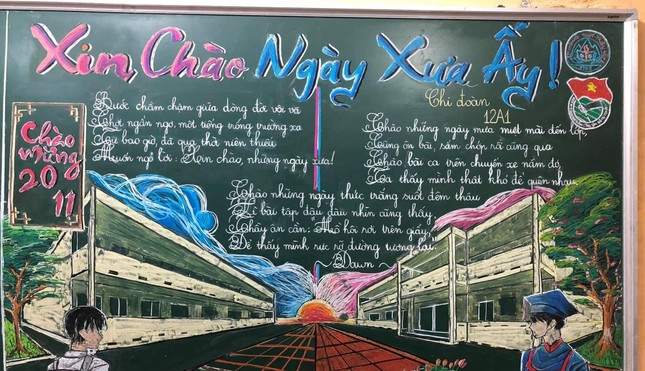 Xin Chào Ngày Xưa Ấy!
Chi đoàn
12A1
Chào
mừng
20
11
Bước chầm chậm giữa dòng đời vội vã
Chợt ngẩn ngơ, một tiếng trống trường xa
Bao giờ, đã qua, thời niên thiếu
Muốn ngỏ lời: Xin chào, những ngày xưa!
Chào những ngày mưa miệt mài đến lớp
Cùng ôn bài, sớm chớp rồi cũng qua
Chào bài ca trên chuyến xe năm đó
Ta thấy mình thật khó để quên nhau
Chào những ngày thức trắng suốt đêm thâu
Về bài tập đâu đâu nhìn cũng thấy
Thầy ân cần: mồ hôi rơi trên giấy
Để thấy mình rực rỡ dương tương lai
~ Dawn ~